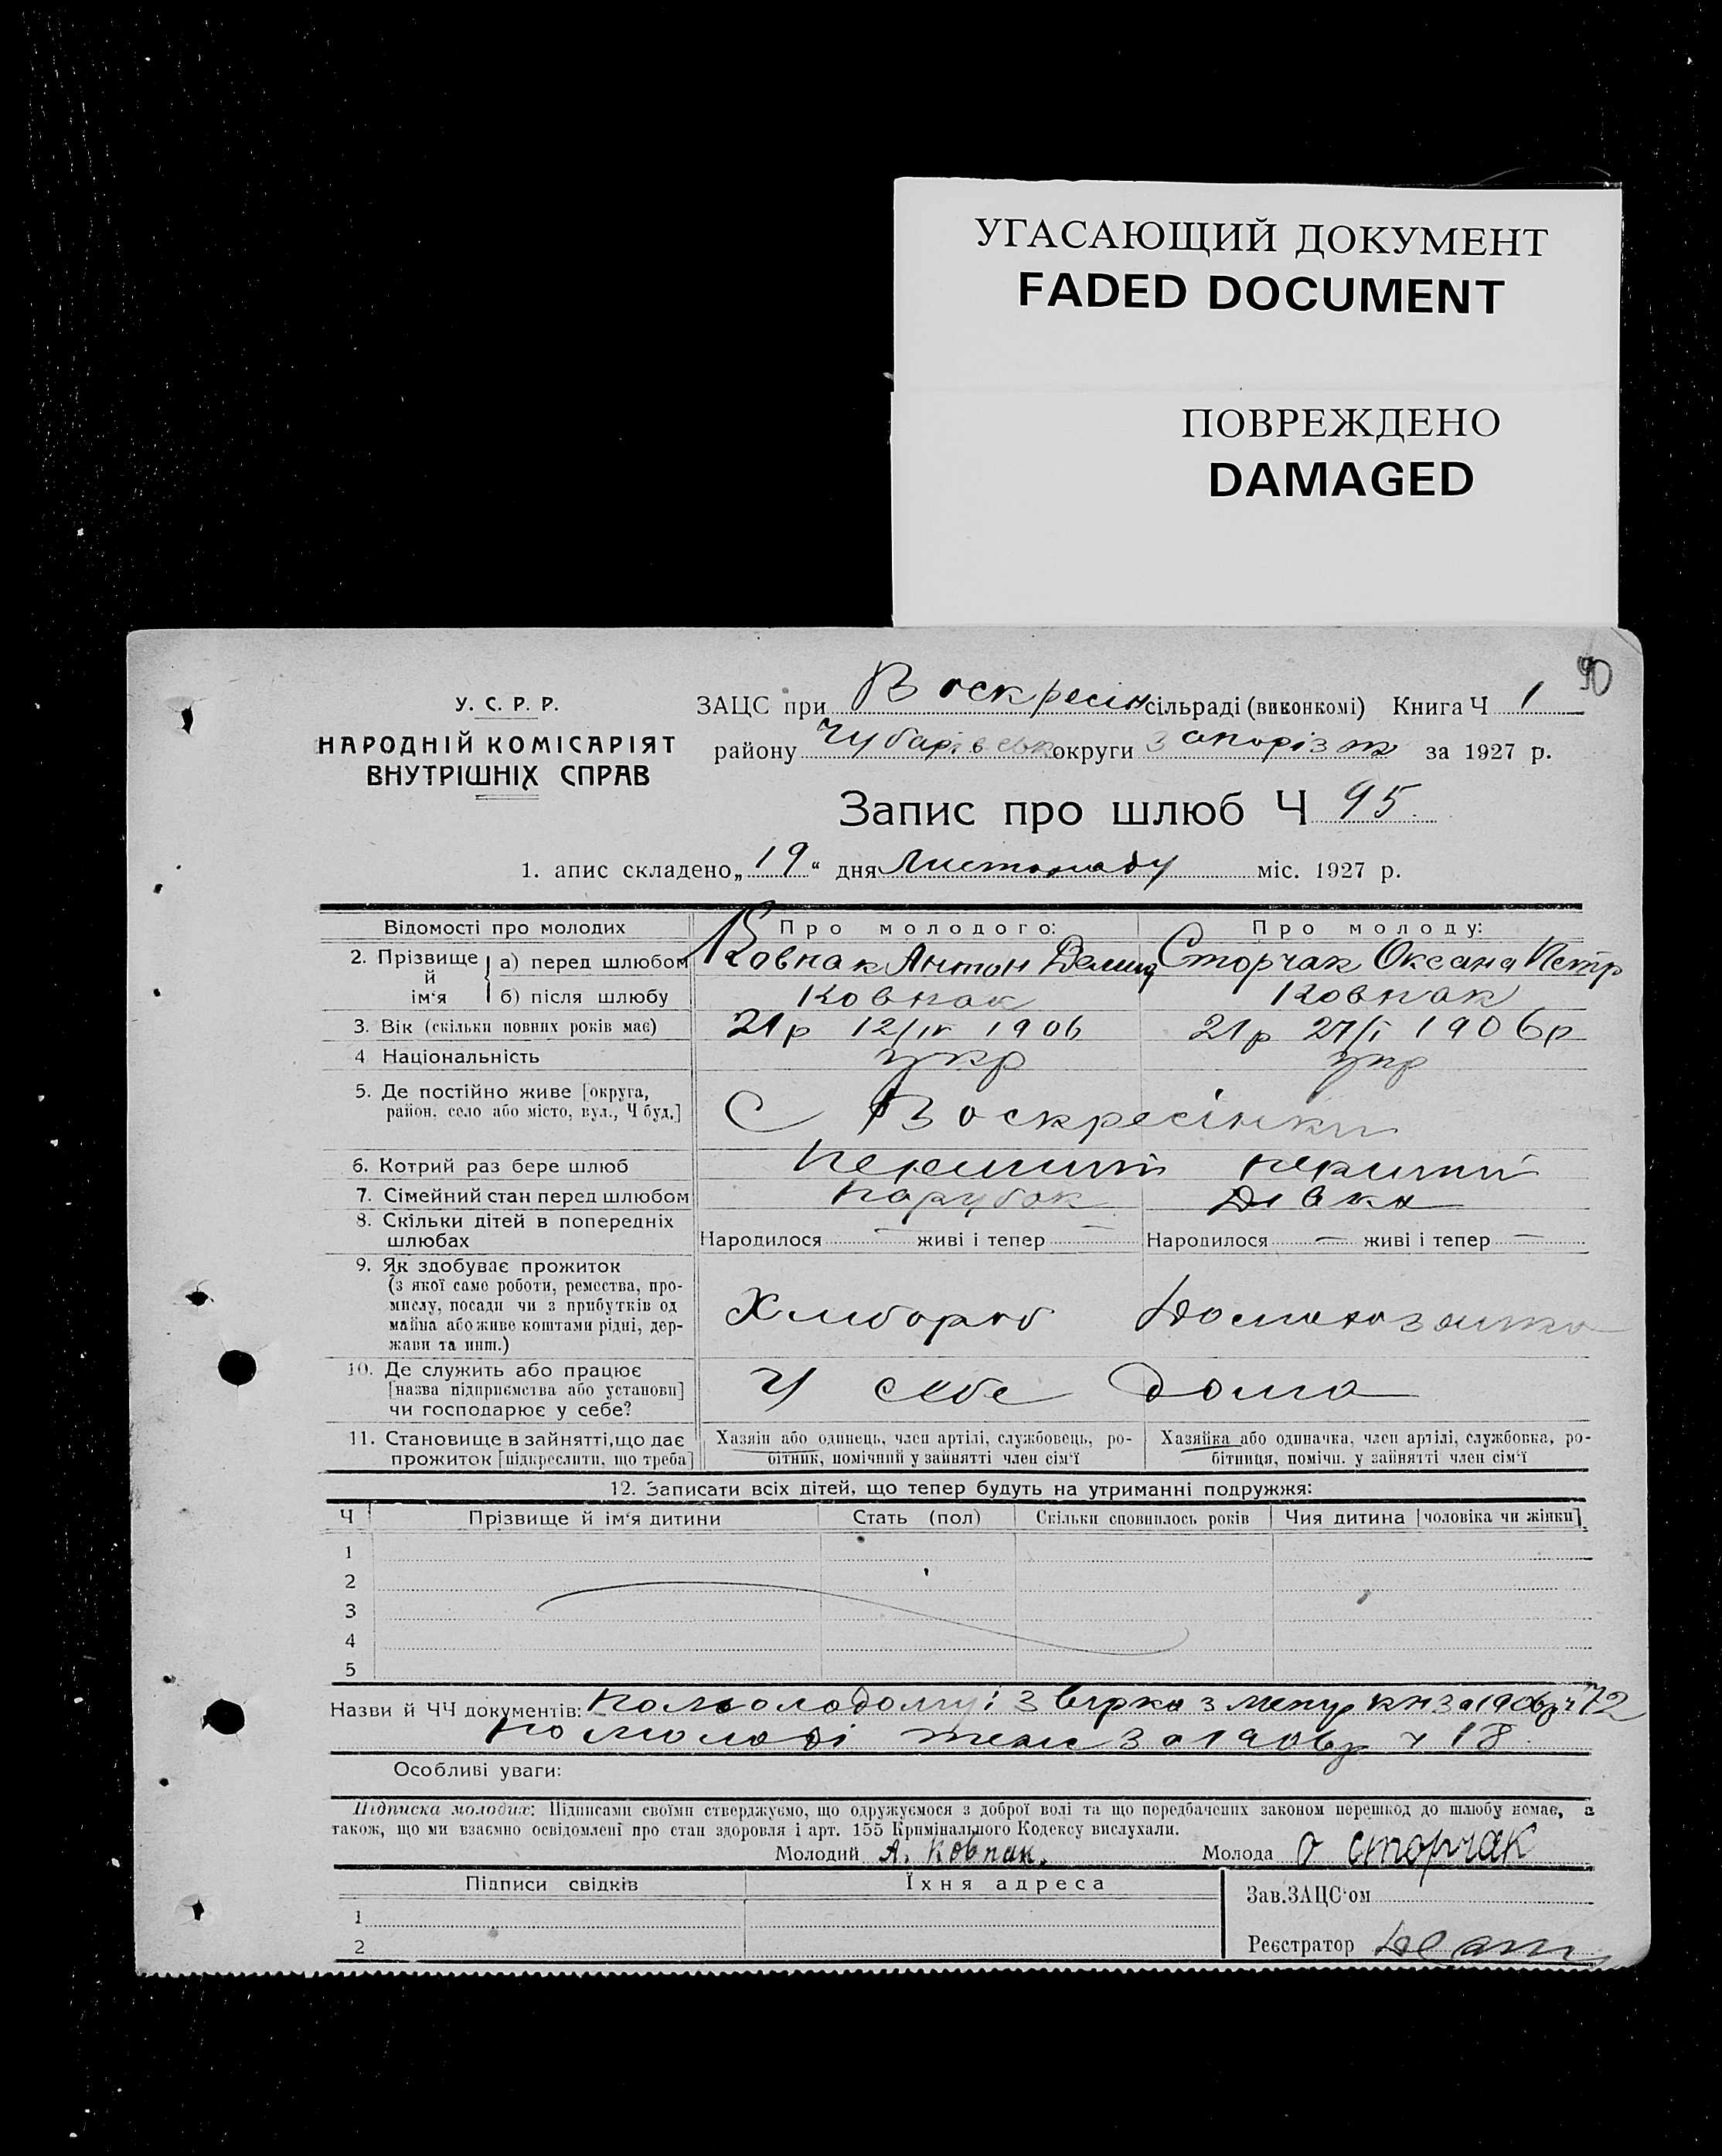 УГАСАЮЩИЙ ДОКУМЕНТ
FADED DOCUMENT
ПОВРЕЖДЕНО
DAMAGED
90
У. С. Р. Р.
НАРОДНІЙ КОМІСАРІЯТ
ВНУТРІШНІХ СПРАВ
ЗАЦС при Воскресін сільраді (виконкомі) Книга Ч 1
району Чубарівськ округи Запоріж за 1927 р.
Запис про шлюб Ч 95.
1. апис складено „19“ дня Листопаду міс. 1927 р.
Відомості про молодих
Про молодого:
Про молоду:
2. Прізвище й ім‘я
а) перед шлюбом
Ковпак Антон Сторчак Оксана Петр
б) після шлюбу
Ковпак Ковпак
3. Вік (скільки повних років має)
21р 12/IV 1906 21р 27/I 1906р
4 Національність
укр укр
5. Де постійно живе [округа,
район, село або місто, вул., Ч буд.]
С Воскресінки
6. Котрий раз бере шлюб
перший перший
7. Сімейний стан перед шлюбом
парубок дівка
8. Скільки дітей в попередніх
шлюбах
Народилося — живі і тепер — Народилося — живі і тепер —
9. Як здобуває прожиток
(з якої саме роботи, ремества, про-
мислу, посади чи з прибутків од
майна або живе коштами рідні, дер-
жави та инш.)
Хлібороб
10. Де служить або працює
[назва підприємства або установи]
чи господарює у себе?
У себе дома
11. Становище в зайнятті, що дає
прожиток [підкреслити, що треба]
Хазяїн або одинець, член артілі, службовець, ро-
бітник, помічний у зайнятті член сім‘ї
Хазяйка або одиначка, член артілі, службовка, ро-
бітниця, помічн. у зайнятті член сім‘ї
12. Записати всіх дітей, що тепер будуть на утриманні подружжя:
Ч Прізвище й ім‘я дитини Стать (пол) Скільки сповнилось років Чия дитина [чоловіка чи жінки]
1
2
3
4
5
Назви й ЧЧ документів: по молодому і звірка з метр кн за 1906р ч 72
по молоді теж за 1906р ч 18.
Особливі уваги:
Підписка молодих: Підписами своїми стверджуємо, що одружуємося з доброї волі та що передбачених законом перешкод до шлюбу немає, а
також, що ми взаємно освідомлені про стан здоровля і арт. 155 Кримінального Кодексу вислухали.
Молодий А. Ковпак. Молода О Сторчак
Підписи свідків Їхня адреса
Зав.ЗАЦС‘ом
1
2
Реєстратор